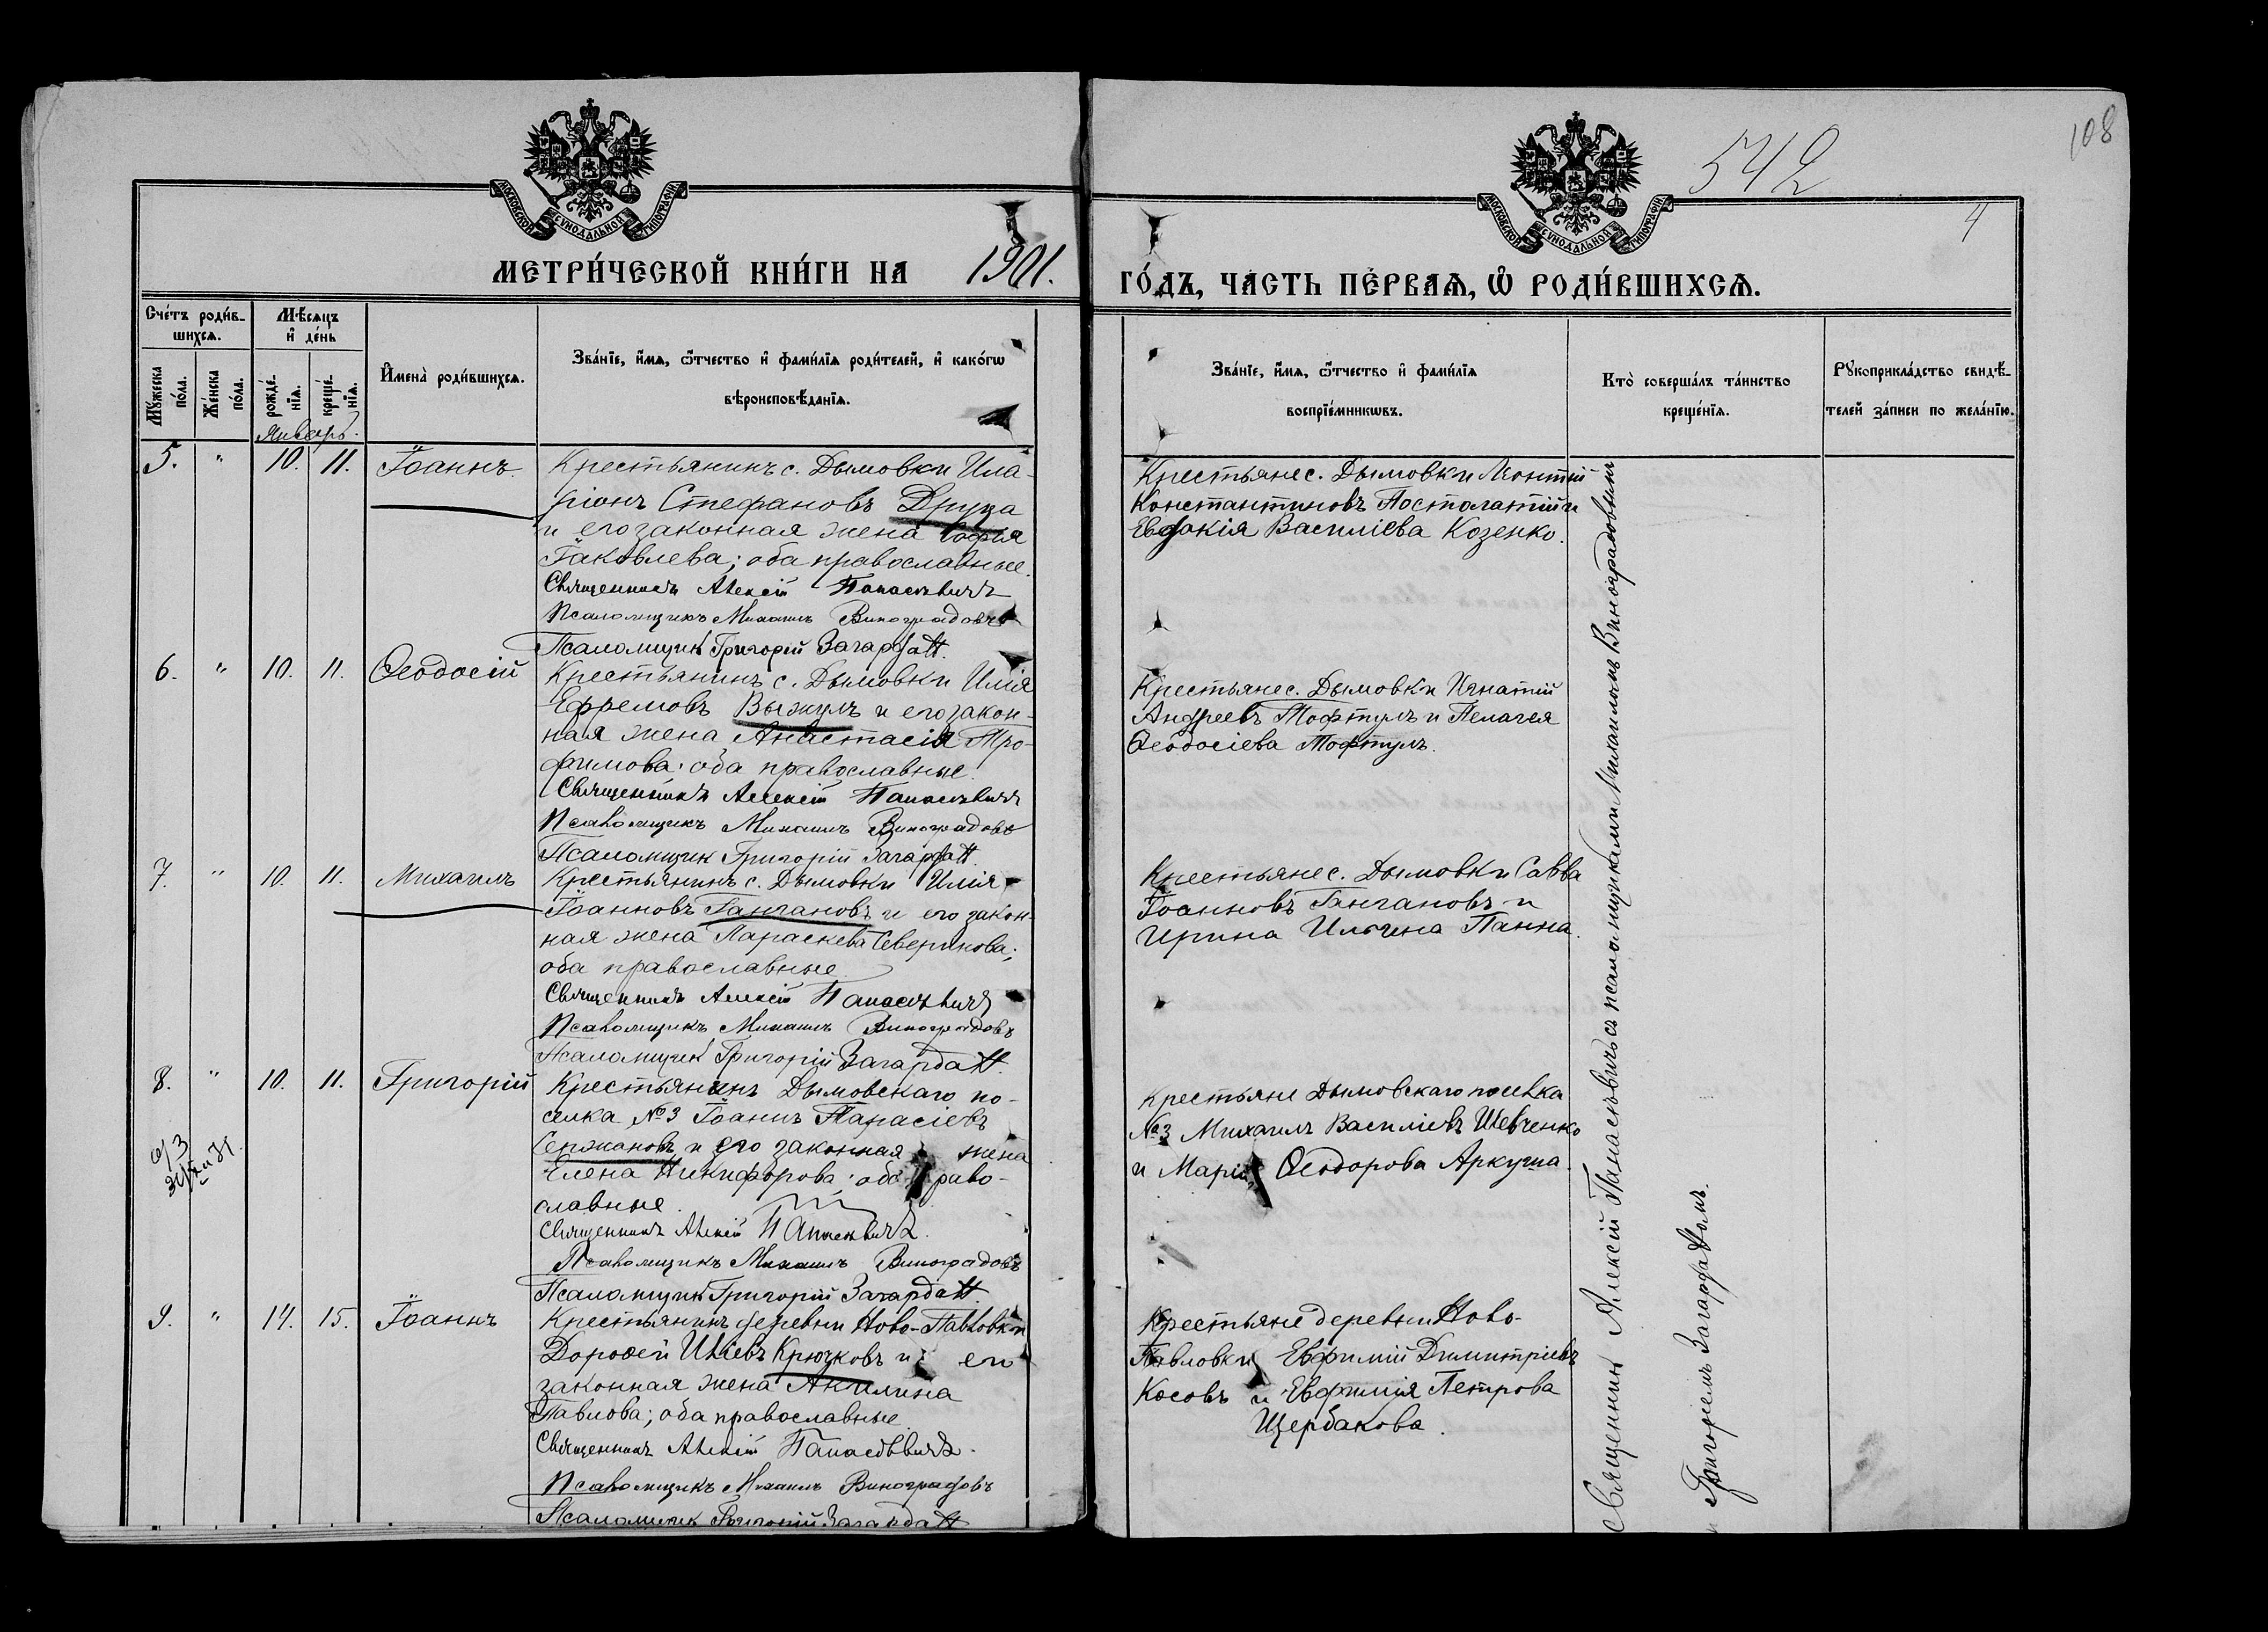 108
542
4
МОСКОВСКОЙ СѴНОДАЛЬНОЙ ТИПОГРАФІИ
МОСКОВСКОЙ СѴНОДАЛЬНОЙ ТИПОГРАФІИ
МЕТРИ́ЧЕСКОЙ КНИ́ГИ НА 1901.
ГО́ДЪ, ЧА́СТЬ ПЕ́РВАѦ, Ѡ҆ РОДИ́ВШИХСѦ.
Сче́тъ роди́в-
шихсѧ.
Мꙋ́жеска по́ла.
Же́нска по́ла.
Мѣ́сѧцъ
и҆ де́нь
рожде́-
нїѧ.
креще́-
нїѧ.
Январь.
И҆мена̀ роди́вшихсѧ.
Зва́нїе, и҆́мѧ, ѻ҆́тчество и҆ фами́лїѧ роди́телей, и҆ како́гѡ
вѣроисповѣ́данїѧ.
Зва́нїе, и҆́мѧ, ѻ҆́тчество и҆ фами́лїѧ
воспрїе́мникѡвъ.
Кто̀ соверша́лъ та́инство
креще́нїѧ.
Рꙋкоприкла́дство свидѣ́-
телей за́писи по жела́нїю.
5. " 10. 11. Іоаннъ
Крестьянинъ с. Дымовки Ила-
ріонъ Стефановъ Друца
и его законная жена Софія
Іаковлева; оба православные.
Священникъ Алексій Панасѣвичъ
Псаломщикъ Михаилъ Виноградовъ
Псаломщик Григорій Загарда
Крестьяне с. Дымовки Леонтій
Константиновъ Постолатій и
Евдокія Василіева Козенко.
6. " 10. 11. Ѳеодосій
Крестьянинъ с. Дымовки Илія
Ефремовъ Выжулъ и его закон-
ная жена Анастасія Тро-
фимова; оба православные.
Священникъ Алексій Панасѣвичъ
Псаломщикъ Михаилъ Виноградовъ
Псаломщик Григорій Загарда
Крестьяне с. Дымовки Игнатій
Андреевъ Тофтулъ и Пелагея
Ѳеодосіева Тофтулъ.
7. " 10. 11. Михаилъ
Крестьянинъ с. Дымовки Илія
Іоанновъ Ганчановъ и его закон-
ная жена Параскева Северинова;
оба православные.
Священникъ Алексій Панасѣвичъ
Псаломщикъ Михаилъ Виноградовъ
Псаломщик Григорій Загарда
Крестьяне с. Дымовки Савва
Іоанновъ Ганчановъ и
Ирина Ильина Панна.
8. " 10. 11. Григорій
Крестьянинъ Дымовскаго по-
селка №3 Іоаннъ Танасіевъ
Сержановъ и его законная жена
Елена Никифорова; оба право-
славные.
Священникъ Алексій Панасѣвичъ.
Псаломщикъ Михаилъ Виноградовъ
Псаломщик Григорій Загарда
Крестьяне Дымовскаго поселка
№3 Михаилъ Василіевъ Шевченко
и Марія Ѳеодорова Аркуша.
9. " 14. 15. Іоаннъ
Крестьянинъ деревни Ново-Павловки
Дороѳей Иліевъ Крючковъ и его
законная жена Акилина
Павлова; оба православные.
Священникъ Алексій Панасѣвичъ.
Псаломщикъ Михаилъ Виноградовъ
Псаломщик Григорій Загарда
Крестьяне деревни Ново-
Павловки Евфимій Димитріевъ
Косовъ и Евфимія Петрова
Щербакова.
Священник Алексій Панасѣвичъ съ псаломщиками Михаиломъ Виноградовымъ
и Григоріемъ